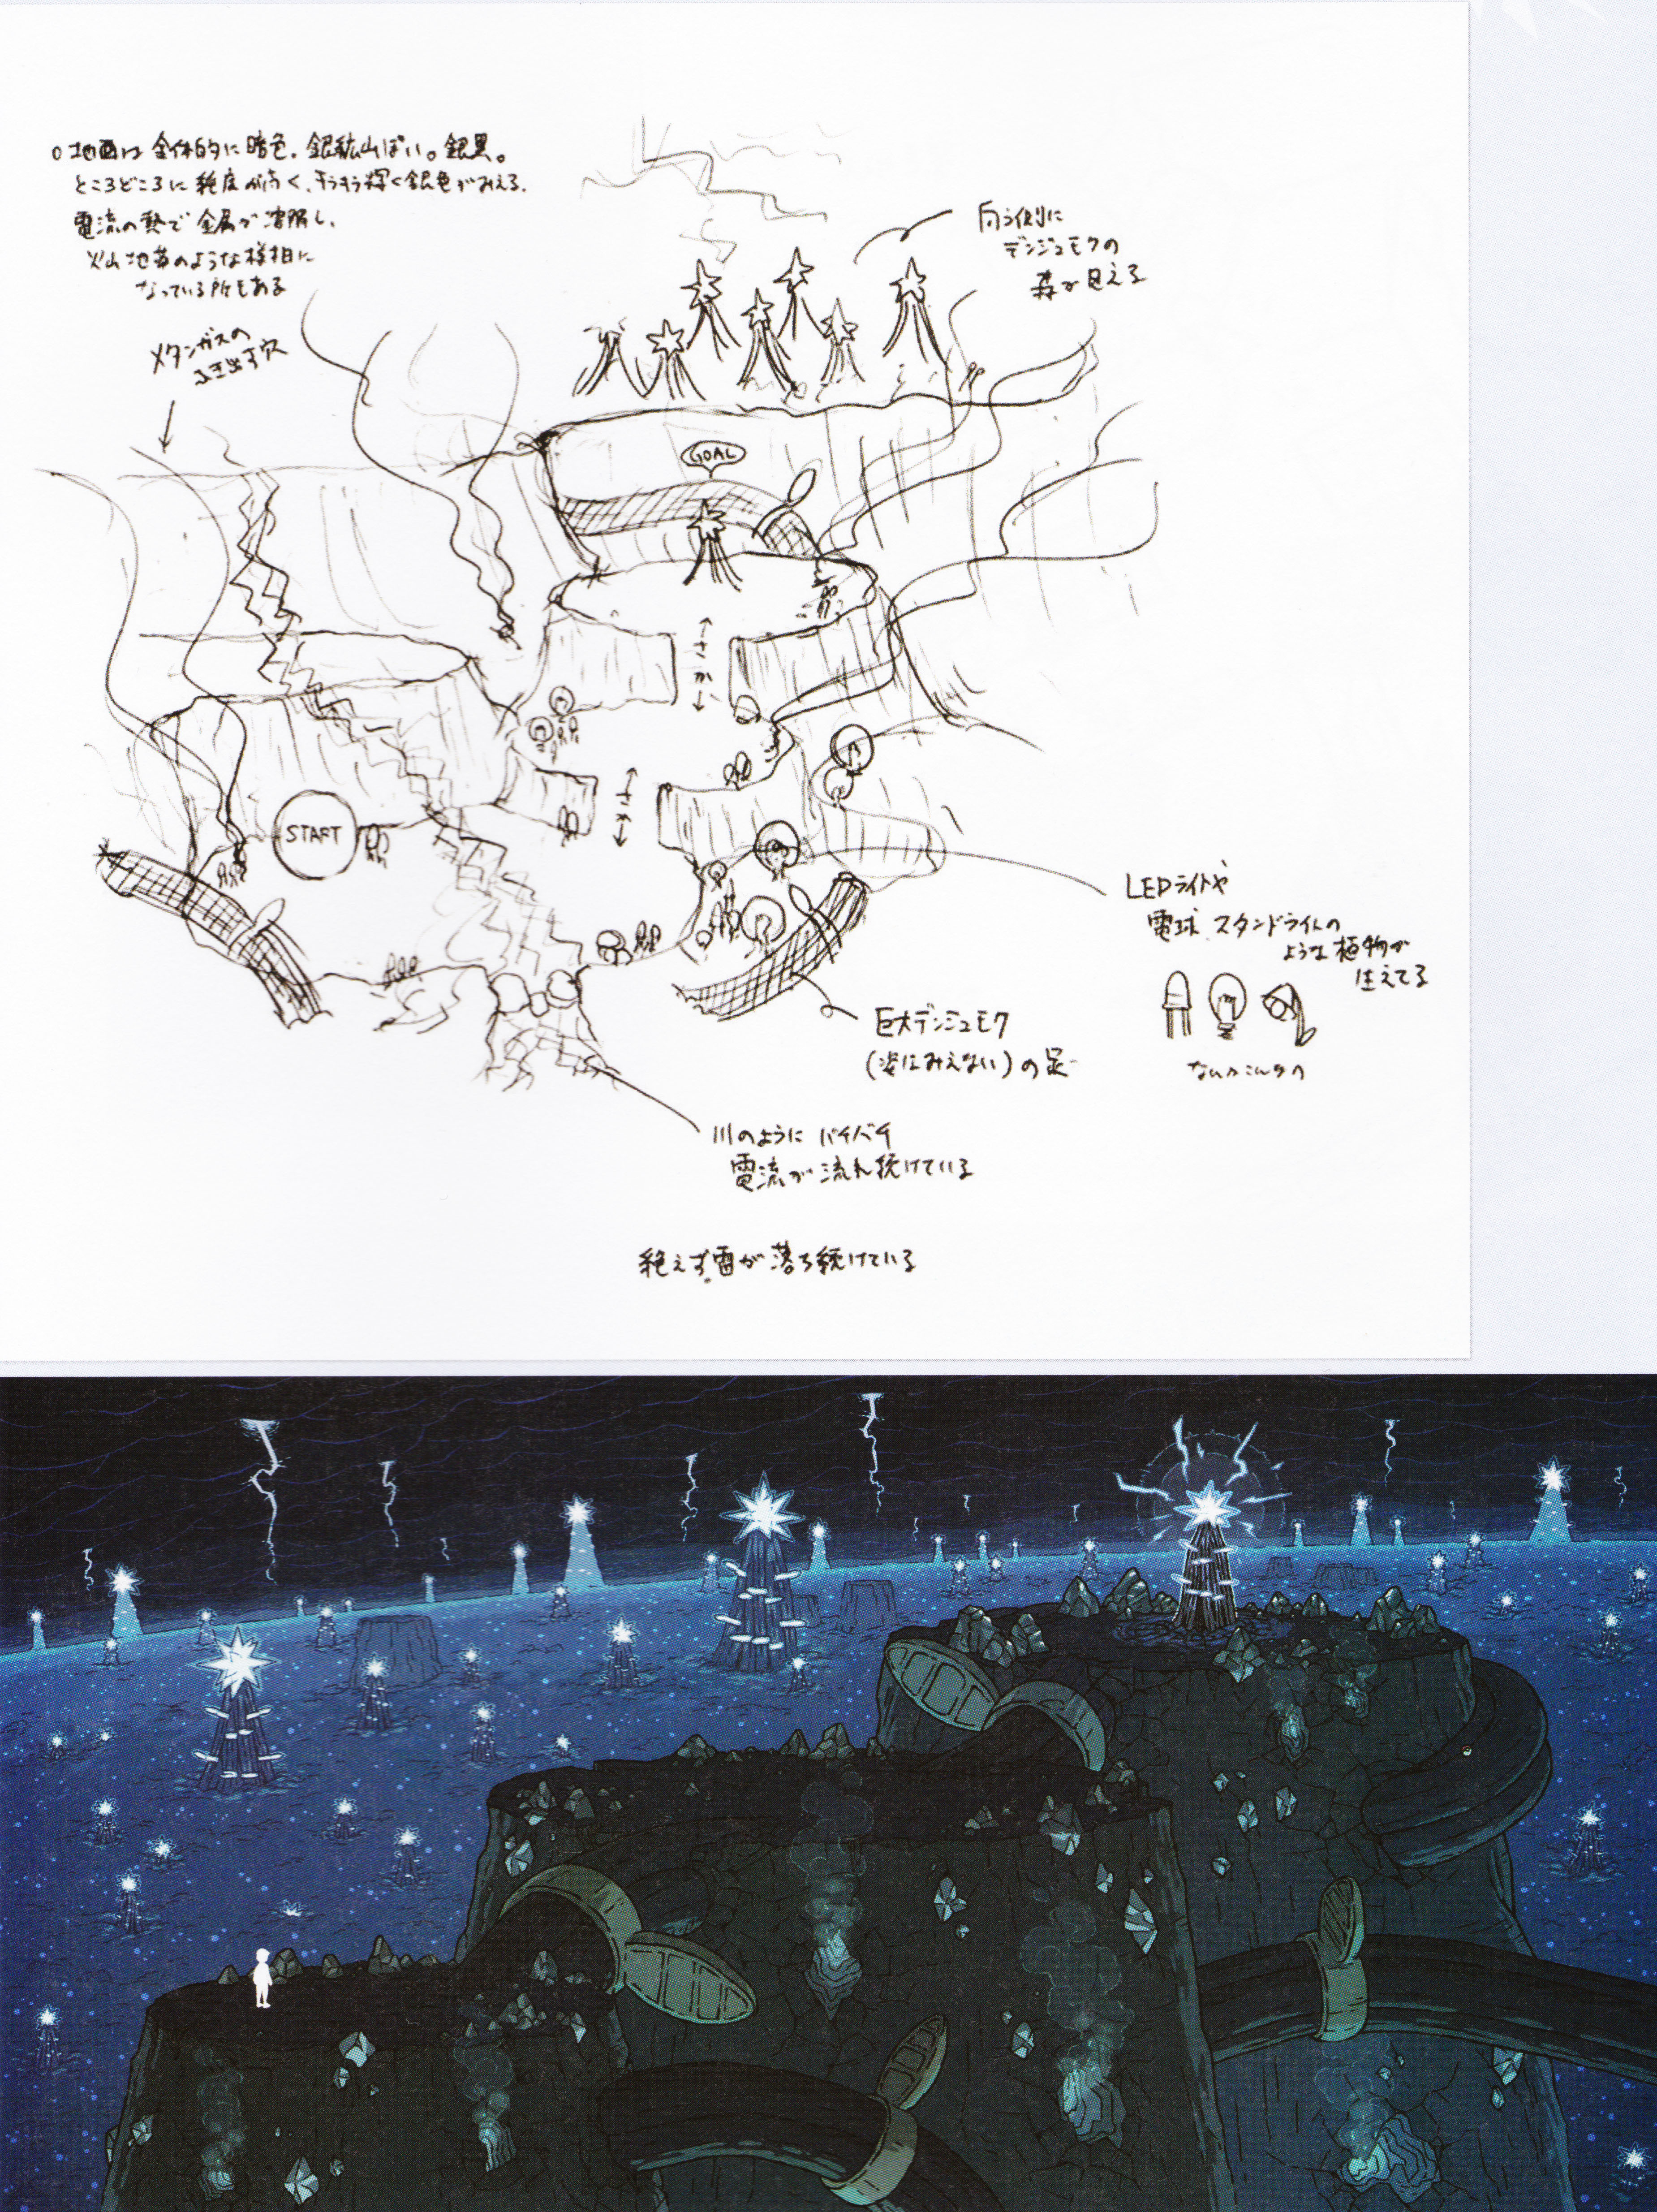 ○地面は全体的に暗色。銀鉱山ぽい。銀黒。
ところどころに純度が高く、キラキラ輝く銀色がみえる。
電流の熱で金属が溶解し、
火山地帯のような様相に
なっている所もある
メタンガスの
ふき出す穴
向う側に
デンジュモクの
森が見える
GOAL
さか
さか
START
LEDライトや
電球、スタンドライトの
ような植物が
生えてる
なんかこんなの
巨大デンジュモク
(姿はみえない)の足
川のように バチバチ
電流が流れ続けている
絶えず雷が落ち続けている